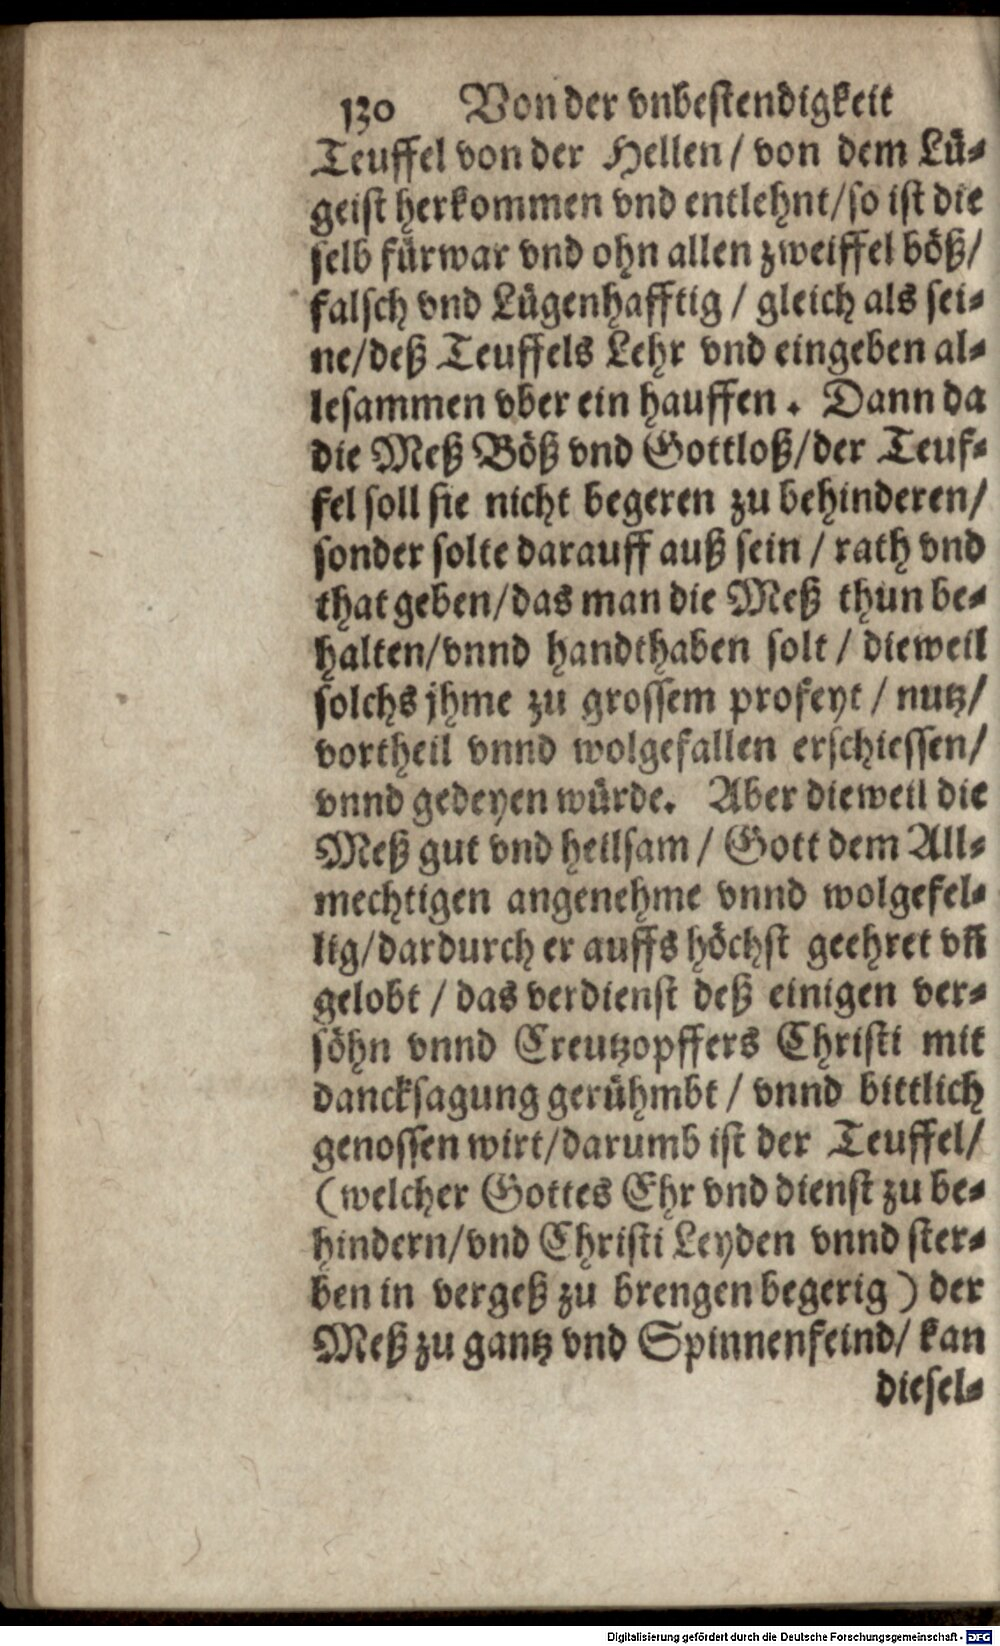 130 Von der vnbestendigkeit
Teuffel von der Hellen / von dem Lü-
geist herkommen vnd entlehnt / so ist die
selb fürwar vnd ohn allen zweiffel böß /
falsch vnd Lügenhafftig / gleich als sei-
ne / deß Teuffels Lehr vnd eingeben al-
lesammen vber ein hauffen. Dann da
die Meß Böß vnd Gottloß / der Teuf-
fel soll sie nicht begeren zu behinderen /
sonder solte darauff auß sein / rath vnd
that geben / das man die Meß thun be-
halten / vnnd handthaben solt / dieweil
solchs jhme zu grossem profeyt / nutz /
vortheil vnnd wolgefallen erschiessen /
vnnd gedeyen würde. Aber dieweil die
Meß gut vnd heilsam / Gott dem All-
mechtigen angenehme vnnd wolgefel-
lig / dardurch er auffs höchst geehret vñ
gelobt / das verdienst deß einigen ver-
söhn vnnd Creutzopffers Christi mit
dancksagung gerühmbt / vnnd bittlich
genossen wirt / darumb ist der Teuffel /
(welcher Gottes Ehr vnd dienst zu be-
hindern / vnd Christi Leyden vnnd ster-
ben in vergeß zu brengen begerig) der
Meß zu gantz vnd Spinnenfeind / kan
diesel-
Digitalisierung gefördert durch die Deutsche Forschungsgemeinschaft - DFG